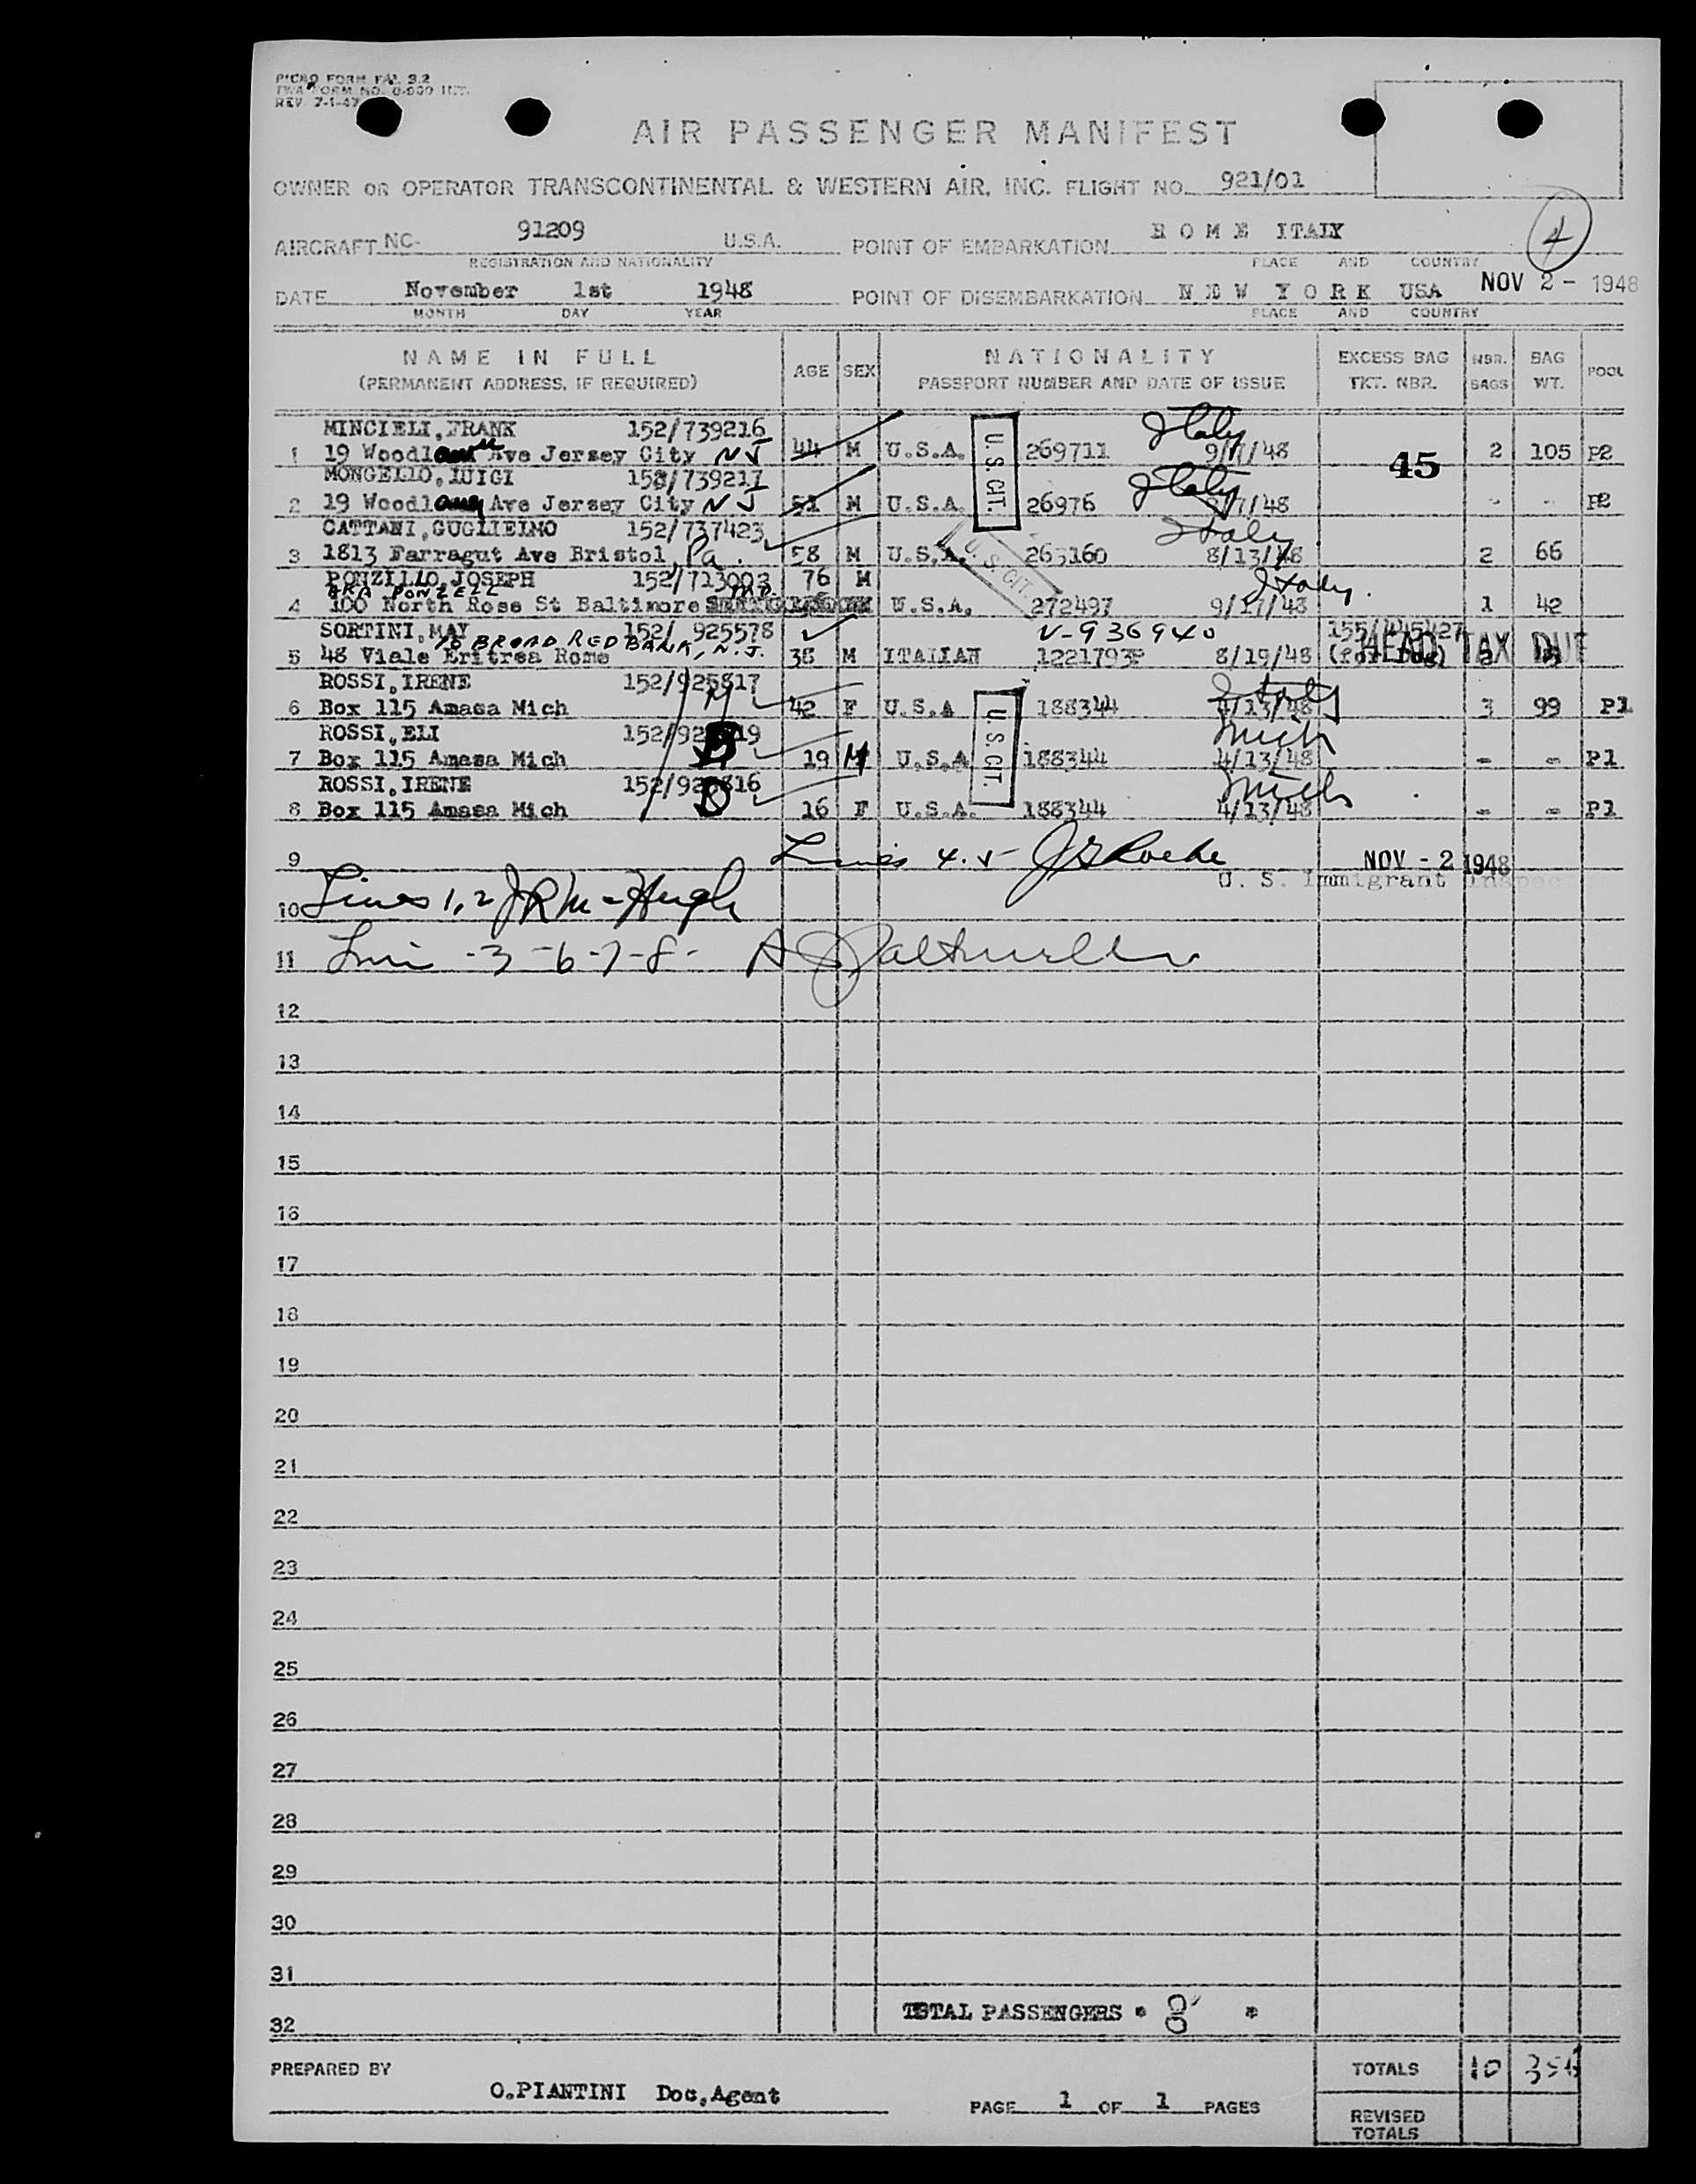 PICAO FORM FAL 3.2
TWA FORM NO. INT.
REV. 7-1-47
AIR PASSENGER MANIFEST
OWNER OR OPERATOR TRANSCONTINENTAL & WESTERN AIR, INC. FLIGHT NO. 921/01
AIRCRAFT NC- 91209 U.S.A. POINT OF EMBARKATION R O M E ITALY 4
REGISTRATION AND NATIONALITY PLACE AND COUNTRY
DATE November 1st 1948 POINT OF DISEMBARKATION N E W Y O R K USA NOV 2 - 1948
MONTH DAY YEAR PLACE AND COUNTRY
NAME IN FULL AGE SEX NATIONALITY EXCESS BAG NBR. BAG POOL
(PERMANENT ADDRESS, IF REQUIRED) PASSPORT NUMBER AND DATE OF ISSUE TKT. NBR. BAGS WT.
MINCIELI, FRANK 152/739216 Italy
1 19 Ave Jersey City N J 44 M U.S.A. U.S. CIT. 269711 9/7/48 45 2 105 P2
MONGELLO, LUIGI 152/739217 Italy
2 19 Ave Jersey City N J 51 M U.S.A. 26976 9/7/48 - - P2
CATTANI, GUGLIELMO 152/737423 Italy
3 1813 Farragut Ave Bristol, Pa. 58 M U.S.A. U.S. CIT. 265160 8/13/48 2 66
PONZILLO, JOSEPH 152/713003 76 M Italy.
AKA PONZELL MD.
4 100 North Rose St Baltimore U.S.A. 272497 9/17/48 1 42
SORTINI, MAY 152/ 925578 V-936940 155/ HEAD TAX DUE
BROAD RED BANK, N.J.
5 48 Viale Eritrea Rome 38 M ITALIAN 1221793P 8/19/48 (for Dog)
ROSSI, IRENE 152/925817 Italy
6 Box 115 Amasa Mich 42 F U.S.A U.S. CIT. 188344 4/13/48 3 99 P1
ROSSI, ELI Mich
7 Box 115 Amasa Mich B 19 M U.S.A 188344 4/13/48 - - P1
ROSSI, IRENE 152/925816 Mich
8 Box 115 Amasa Mich B 16 F U.S.A. 188344 4/13/48 - - P1
9 Lines 4.5- J G Roche NOV - 2 1948
U. S. Immigrant Inspec
10 Lines 1,2 J R McHugh
11 Line -3-6-7-8-
12
13
14
15
16
17
18
19
20
21
22
23
24
25
26
27
28
29
30
31
32 TOTAL PASSENGERS * 8 *
PREPARED BY TOTALS 10
O.PIANTINI Doc,Agent PAGE 1 OF 1 PAGES
REVISED
TOTALS